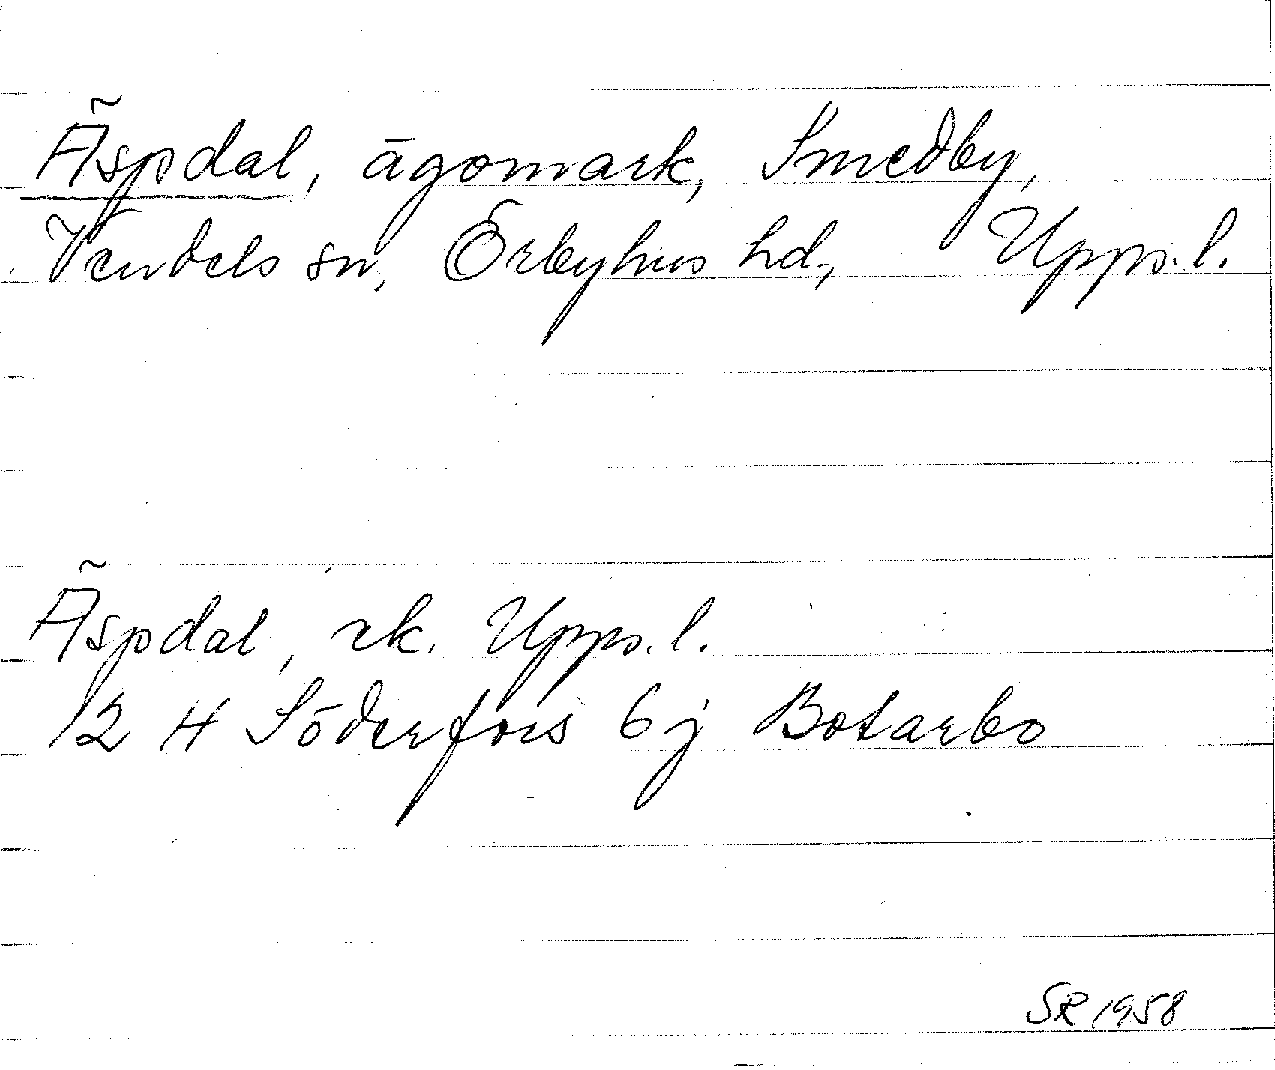 Äspdal, ägomark, Smedby,
Vendels sn, Örbyhus hd, Upps. l.
Äspdal, rk. Upps. l.
12 H Söderfors 6j Botarbo
SR 1958